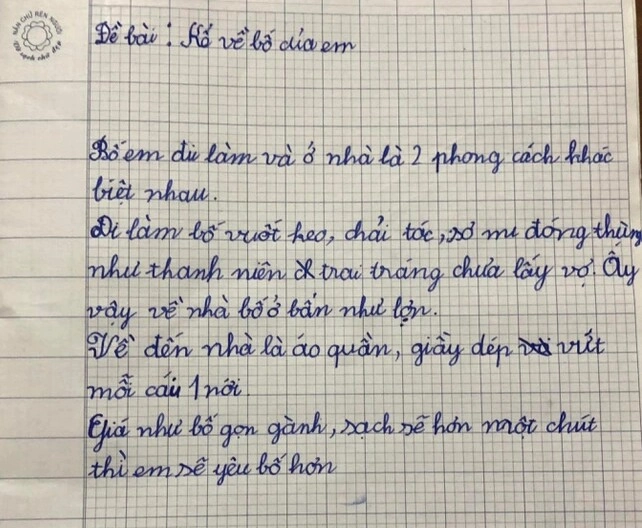 NẮN CHỮ RÈN NGƯỜI
Đề bài : Kể về bố của em
Bố em đi làm và ở nhà là 2 phong cách khác
biệt nhau.
Đi làm bố vuốt keo, chải tóc, sơ mi đóng thùng
như thanh niên trai tráng chưa lấy vợ. Ấy
vậy về nhà bố ở bẩn như lợn.
Về đến nhà là áo quần, giầy dép vứt
mỗi cái 1 nơi.
Giá như bố gọn gành, sạch sẽ hơn một chút
thì em sẽ yêu bố hơn